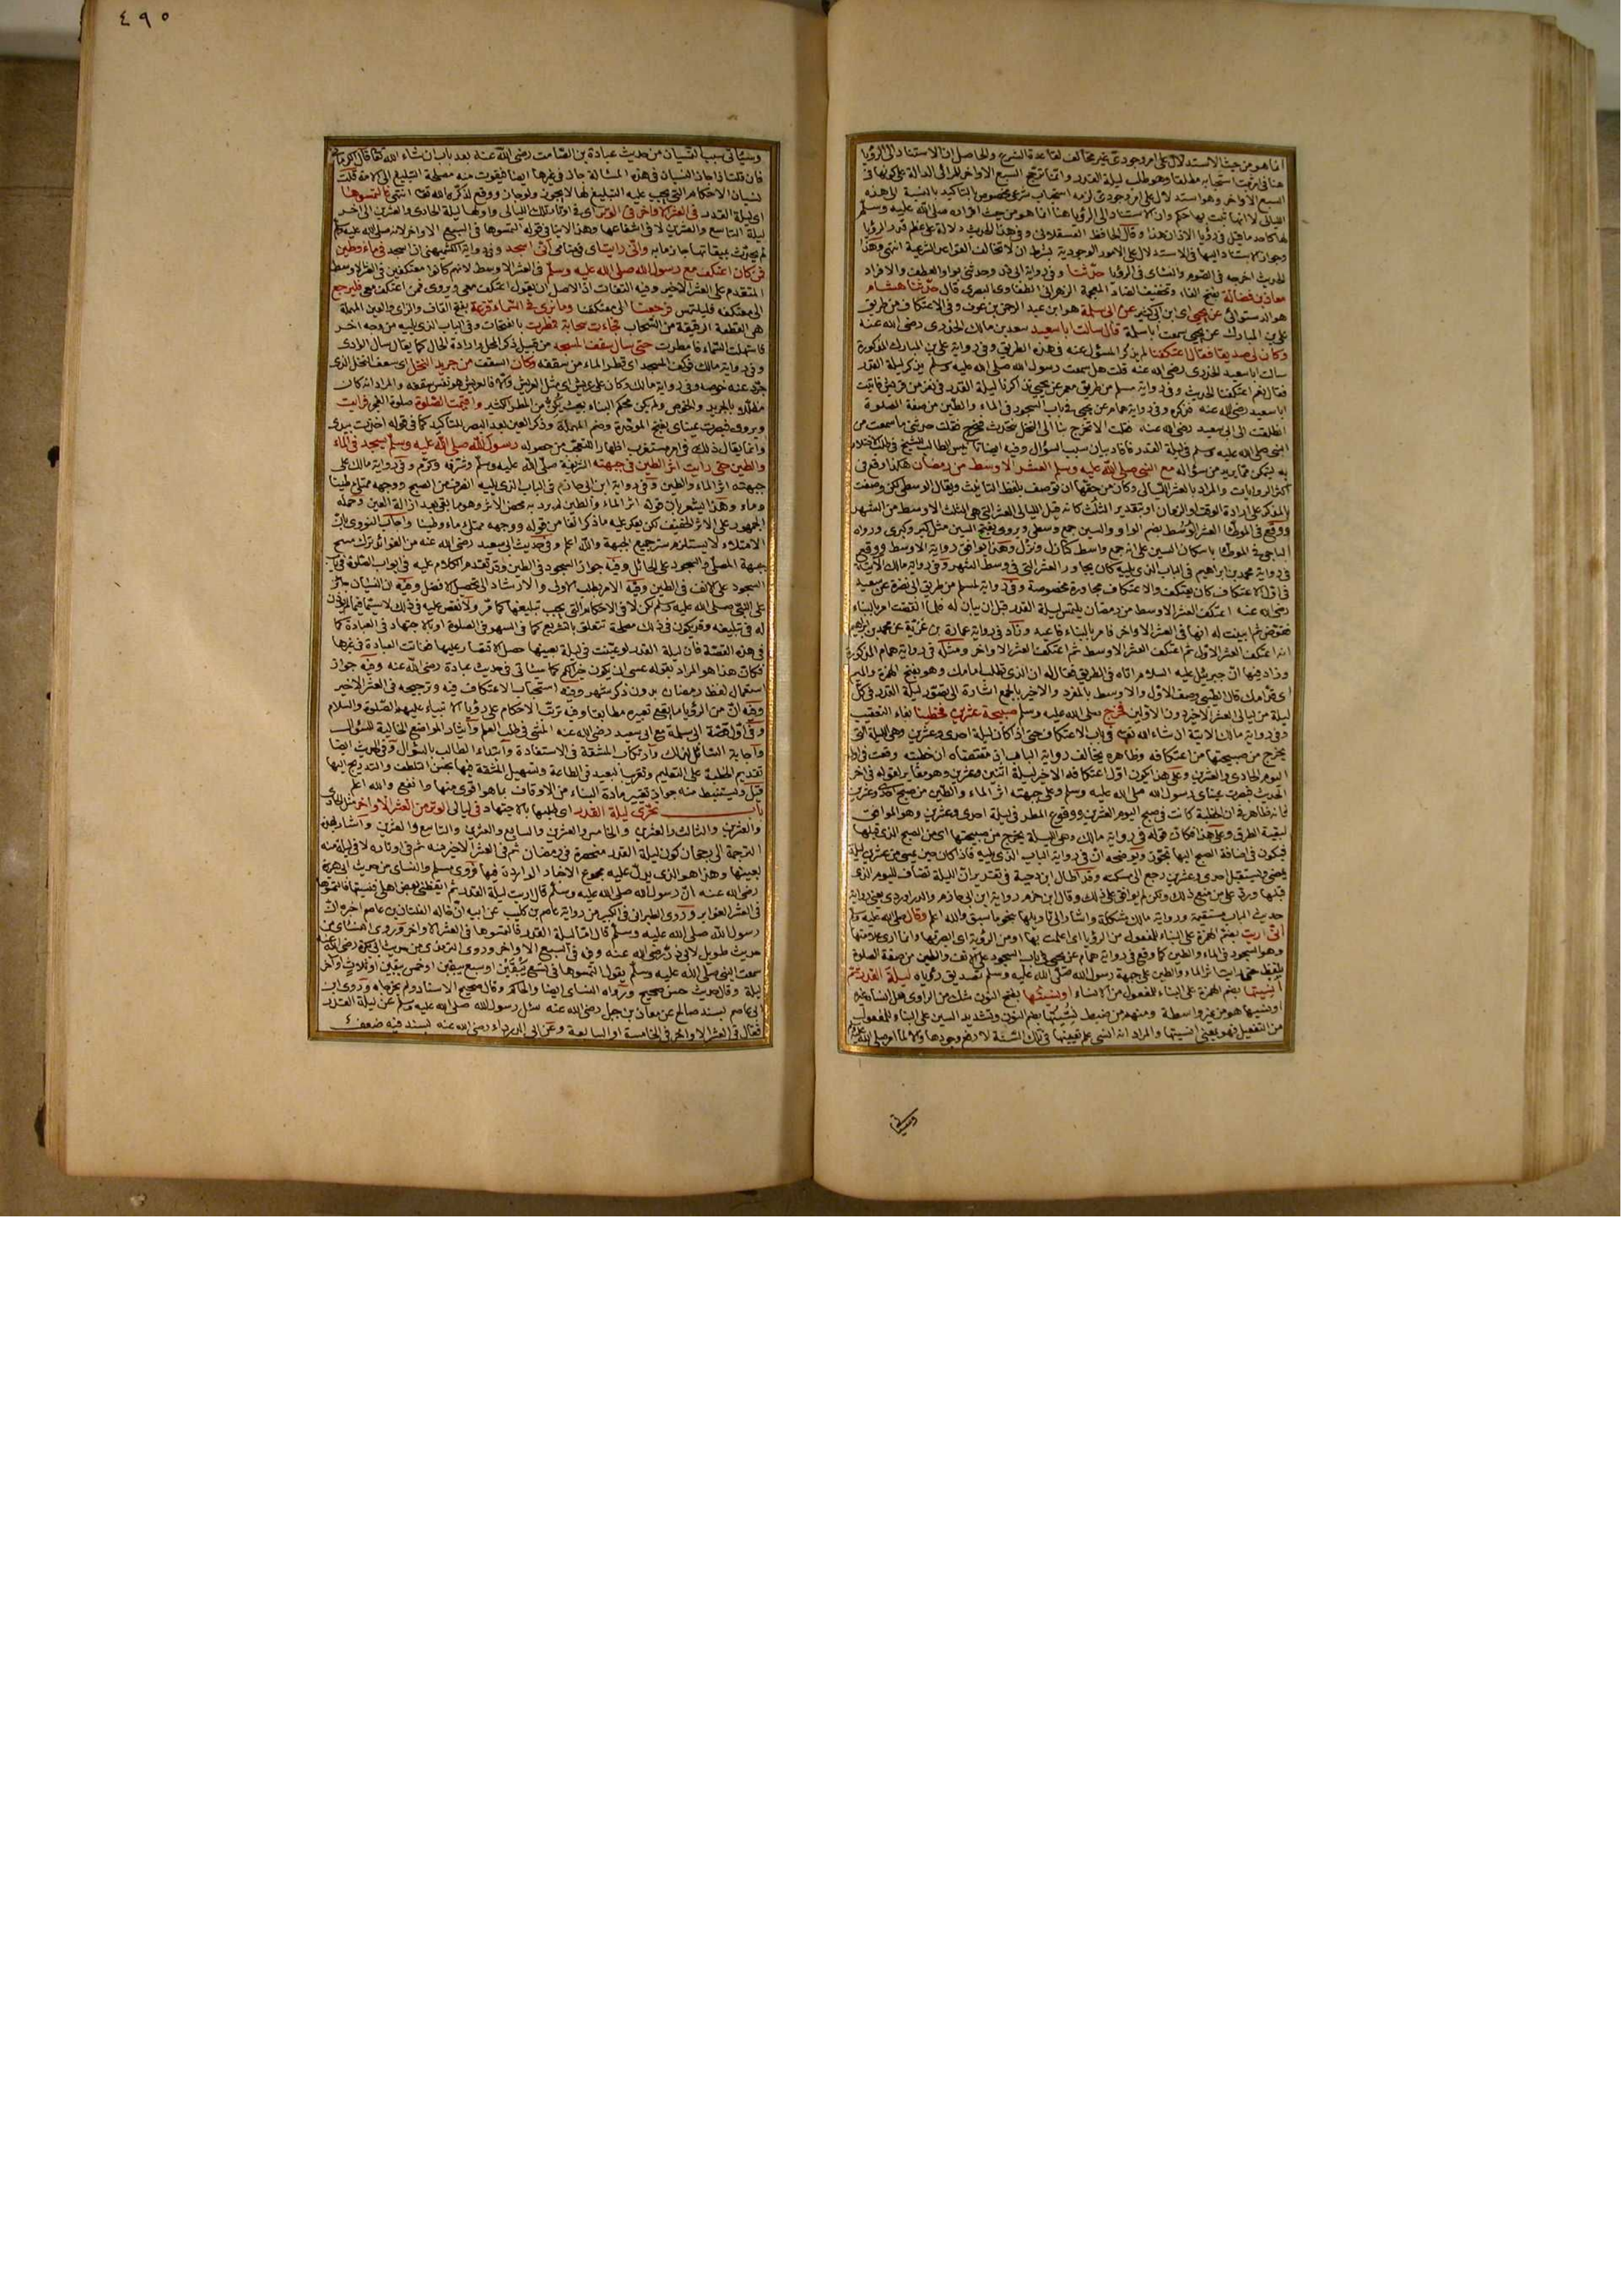 ٤٩٥
انما هو من حيث الاستدلال على امر وجودى غير مخالف لقاعدة الشرع والحاصل ان الاستناد الى الرؤيا
هنا فى امر ثبت استحبابه مطلقا وهو طلب ليلة القدر وانما ترجح السبع الاواخر للمرائى الدالة على كونها فى
السبع الاواخر وهو استدلال على امر وجودى لزمه استحباب شرعى مخصوص بالتاكيد بالنسبة الى هذه
الليالى لا انها ثبت بها حكم وان الاستناد الى الرؤيا هنا انما هو من حيث اقراره صلى الله عليه وسلم
لها كاحد ما قيل فى رؤيا الاذان هذا وقال الحافظ العسقلانى وفى هذا الحديث دلالة على عظم قدر الرؤيا
وجواز الاستناد اليها فى الاستدلال على الامور الوجودية بشرط ان لا تخالف القواعد الشرعية انتهى وهذا
الحديث اخرجه فى الصوم والنسائى فى الرؤيا حدثنا وفى رواية ابى ذر وحدثنى بواو العطف والافراد
معاذ بن فضالة بفتح الفاء وتخفيف الضاد المعجمة الزهرانى الطفاوى البصرى قال حدثنا هشام
هو الدستوائى عن يحيى اى ابن ابى كثير عن ابى سلمة هو ابن عبد الرحمن بن عوف وفى الاعتكاف من طريق
على بن المبارك عن يحيى سمعت ابا سلمة قال سالت ابا سعيد سعد بن مالك الخدرى رضى الله عنه
وكان لى صديقا فقال اعتكفنا لم يذكر المسؤل عنه فى هذه الطريق وفى رواية على بن المبارك المذكورة
سالت ابا سعيد الخدرى رضى الله عنه قلت هل سمعت رسول الله صلى الله عليه وسلم يذكر ليلة القدر
فقال نعم اعتكفنا الحديث وفى رواية مسلم من طريق معمر عن يحيى تذاكرنا ليلة القدر فى نفر من قريش فاتيت
ابا سعيد رضى الله عنه فذكره وفى رواية همام عن يحيى فى باب السجود فى الماء والطين من صفة الصلوة
انطلقت الى ابى سعيد رضى الله عنه فقلت الا تخرج بنا الى النخل نتحدث فخرج فقلت حدثنى ما سمعت من
النبى صلى الله عليه وسلم فى ليلة القدر فافاد بيان سبب السؤال وفيه ايضا تانيس الطالب للشيخ فى طلب الاختلاء
به ليتمكن مما يريد من سؤاله مع النبى صلى الله عليه وسلم العشر الاوسط من رمضان هكذا وقع فى
اكثر الروايات والمراد بالعشر الليالى وكان من حقها ان توصف بلفظ التانيث ويقال الوسطى لكن وصفت
بالمذكر على ارادة الوقت او الزمان او بتقدير الثلث كانه قيل الليالى العشر التى هى الثلث الاوسط من الشهر
ووقع فى الموطأ العشر الوسط بضم الواو والسين جمع وسطى ويروى بفتح السين مثل كبر وكبرى ورواه
الباجى فى الموطأ باسكان السين على انه جمع واسط كبازل وبزل وهذا يوافق رواية الاوسط ووقع
فى رواية محمد بن ابراهيم فى الباب الذى يليه كان يجاور العشر التى فى وسط الشهر وفى رواية مالك الاتية
فى اول الاعتكاف كان يعتكف والاعتكاف مجاورة مخصوصة وفى رواية لمسلم من طريق ابى نضرة عن سعيد
رضى الله عنه اعتكف العشر الاوسط من رمضان يلتمس ليلة القدر قبل ان تبان له فلما انقضت امر بالبناء
فقوض ثم ابينت له انها فى العشر الاواخر فامر بالبناء فاعيد وزاد فى رواية عمارة بن غزية عن محمد بن ابراهيم
انه اعتكف العشر الاول ثم اعتكف العشر الاوسط ثم اعتكف العشر الاواخر ومثله فى رواية همام المذكورة
وزاد فيها ان جبريل عليه السلام اتاه فى الطريق فقال له ان الذى تطلب امامك وهو بفتح الهمزة والميم
اى قدامك قال الطيبى وصف الاول والاوسط بالمفرد والاخير بالجمع اشارة الى تصور ليلة القدر فى كل
ليلة من ليالى العشر الاخير دون الاولين فخرج صلى الله عليه وسلم صبيحة عشرين فخطبنا بفاء التعقيب
وفى رواية مالك الاتية ان شاء الله تعالى فى باب الاعتكاف حتى اذا كان ليلة احدى وعشرين وهى الليلة التى
يخرج من صبيحتها من اعتكافه وظاهره يخالف رواية الباب اذ مقتضاه ان خطبته وقعت فى اول
اليوم الحادى والعشرين وعلى هذا يكون اول اعتكافه الاخير ليلة اثنين وعشرين وهو مغاير لقوله فى اخر
الحديث فبصرت عيناى رسول الله صلى الله عليه وسلم وعلى جبهته اثر الماء والطين من صبح احدى وعشرين
فانه ظاهر فى ان الخطبة كانت فى صبح اليوم العشرين ووقوع المطر فى ليلة احدى وعشرين وهو الموافق
لبقية الطرق وعلى هذا فكان قوله فى رواية مالك وهى الليلة يخرج من صبيحتها اى من الصبح الذى قبلها
فيكون فى اضافة الصبح اليها تجوز ويوضحه ان فى رواية الباب الذى يليه فاذا كان حين يمسى من عشرين ليلة
يمضى ويستقبل احدى وعشرين رجع الى مسكنه وقد اطال ابن دحية فى تقدير ان الليلة تضاف لليوم الذى
قبلها ورد على من منع ذلك ولكن لم يوافق على ذلك وقال ابن حزم رواية ابن ابى حازم والدراوردى يعنى رواية
حديث الباب مستقيمة ورواية مالك مشكلة واشار الى تاويلها بنحو ما سبق والله اعلم وقال صلى الله عليه وسلم
انى اريت بضم الهمزة على البناء للمفعول من الرؤيا اى اعلمت بها او من الرؤية اى ابصرتها وانما ارى علامتها
وهو السجود فى الماء والطين كما وقع فى رواية همام عن يحيى فى باب السجود على الانف والطين من صفة الصلوة
بلفظ حتى رايت اثر الماء والطين على جبهة رسول الله صلى الله عليه وسلم تصديق رؤياه ليلة القدر ثم
انسيتها بضم الهمزة على البناء للمفعول من الانساء او نسيتها بفتح النون شك من الراوى هل انساه غيره
او نسيها هو من غير واسطة ومنهم من ضبط نسيتها بضم النون وتشديد السين على البناء للمفعول
من التفعيل فهو بمعنى انسيتها والمراد انه انسى علم تعيينها فى تلك السنة لا رفع وجودها والا لما امر صلى الله
وسياتى
وسياتى سبب النسيان من حديث عبادة بن الصامت رضى الله عنه بعد باب ان شاء الله تعالى قال الكرمانى
فان قلت اذا جاز النسيان فى هذه المسئلة جاز فى غيرها ايضا فيفوت منه مصلحة التبليغ الى الامة قلت
نسيان الاحكام التى يجب عليه التبليغ لها لا يجوز ولو جاز ووقع لذكره الله تعالى انتهى فالتمسوها
اى ليلة القدر فى العشر الاواخر فى الوتر اى فى اوتار تلك الليالى واولها ليلة الحادى والعشرين الى اخر
ليلة التاسع والعشرين لا فى اشفاعها وهذا لا ينافى قوله التمسوها فى السبع الاواخر لانه صلى الله عليه وسلم
لم يحدث بميقاتها جازما به وانى رايت اى فى منامى انى اسجد وفى رواية الكشميهنى ان اسجد فى ماء وطين
فمن كان اعتكف مع رسول الله صلى الله عليه وسلم فى العشر الاوسط لانهم كانوا معتكفين فى العشر الاوسط
المتقدم على العشر الاخير وفيه التفات اذ الاصل ان يقول اعتكف معى ويروى فمن اعتكف معى فليرجع
الى معتكفه فليلتمس فرجعنا الى معتكفنا وما نرى فى السماء قزعة بفتح القاف والزاى والعين المهملة
هى القطعة الرقيقة من السحاب فجاءت سحابة فمطرت بالفتحات وفى الباب الذى يليه من وجه اخر
فاستهلت السماء فامطرت حتى سال سقف المسجد من قبيل ذكر المحل وارادة الحال كما يقال سال الوادى
وفى رواية مالك فوكف المسجد اى قطر الماء من سقفه وكان السقف من جريد النخل اى سعف النخل الذى
جرد عنه خوصه وفى رواية مالك وكان على عريش اى مثل العريش والا فالعريش هو نفس سقفه والمراد انه كان
مظللا بالجريد والخوص ولم يكن محكم البناء بحيث يكن من المطر الكثير واقيمت الصلوة صلوة الفجر فرايت
ويروى فبصرت عيناى بفتح الموحدة وضم المهملة وذكر العين بعد البصر للتاكيد كما فى قوله اخذت بيدى
وانما يقال ذلك فى امر مستغرب اظهارا للتعجب من حصوله رسول الله صلى الله عليه وسلم يسجد فى الماء
والطين حتى رايت اثر الطين فى جبهته الشريفة صلى الله عليه وسلم وشرف وكرم وفى رواية مالك على
جبهته اثر الماء والطين وفى رواية ابن ابى حازم فى الباب الذى يليه انصرف من الصبح ووجهه ممتلئ طينا
وماء وهذا يشعر بان قوله اثر الماء والطين لم يرد به محض الاثر وهو ما يبقى بعد ازالة العين وحمله
الجمهور على الاثر الخفيف لكن يعكر عليه ما ذكر انفا من قوله ووجهه ممتلئ ماء وطينا واجاب النووى بان
الامتلاء لا يستلزم ستر جميع الجبهة والله اعلم وفى حديث ابى سعيد رضى الله عنه من الفوائد ترك مسح
جبهة المصلى والسجود على الحائل وفيه جواز السجود فى الطين وقد تقدم الكلام عليه فى ابواب الصلوة فى باب
السجود على الانف فى الطين وفيه الامر بطلب الاولى والارشاد الى تحصيل الافضل وفيه ان النسيان جائز
على النبى صلى الله عليه وسلم لكن لا فى الاحكام التى يجب تبليغها كما مر ولا نقص عليه فى ذلك لاسيما فيما لم يؤذن
له فى تبليغه وقد يكون فى ذلك مصلحة تتعلق بالتشريع كما فى السهو فى الصلوة او بالاجتهاد فى العبادة كما
فى هذه القصة فان ليلة القدر لو عينت فى ليلة بعينها حصل الاقتصار عليها ففاتت العبادة فى غيرها
فكان هذا هو المراد بقوله عسى ان يكون خيرا لكم كما سياتى فى حديث عبادة رضى الله عنه وفيه جواز
استعمال لفظ رمضان بدون ذكر شهر وفيه استحباب الاعتكاف فيه وترجيحه فى العشر الاخير
وفيه ان من الرؤيا ما يقع تعبيره مطابقا وفيه ترتب الاحكام على رؤيا الانبياء عليهم الصلوة والسلام
وفى اول قصة ابى سلمة مع ابى سعيد رضى الله عنه المشى فى طلب العلم وايثار المواضع الخالية للسؤال
واجابة السائل لذلك وارتكاب المشقة فى الاستفادة وابتداء الطالب بالسؤال وفى الحديث ايضا
تقديم الخطبة على التعليم وتقريب البعيد فى الطاعة وتسهيل المشقة فيها بحسن التلطف والتدريج اليها
قيل ويستنبط منه جواز تغيير مادة البناء من الاوقاف بما هو اقوى منها وانفع والله اعلم
باب تحرى ليلة القدر اى طلبها بالاجتهاد فى ليالى الوتر من العشر الاواخر مثل الحادى
والعشرين والثالث والعشرين والخامس والعشرين والسابع والعشرين والتاسع والعشرين واشار بهذه
الترجمة الى رجحان كون ليلة القدر منحصرة فى رمضان ثم فى العشر الاخير منه ثم فى اوتاره لا فى ليلة منه
بعينها وهذا هو الذى يدل عليه مجموع الاخبار الواردة فيها فروى مسلم والنسائى من حديث ابى هريرة
رضى الله عنه ان رسول الله صلى الله عليه وسلم قال اريت ليلة القدر ثم ايقظنى بعض اهلى فنسيتها فالتمسوها
فى العشر الغوابر وروى الطبرانى فى الكبير من رواية عاصم بن كليب عن ابيه ان خاله الفلتان بن عاصم اخبره ان
رسول الله صلى الله عليه وسلم قال اما ليلة القدر فالتمسوها فى العشر الاواخر وروى النسائى من
حديث طويل لابى ذر رضى الله عنه وفيه فى السبع الاواخر وروى الترمذى من حديث ابى بكرة رضى الله عنه
سمعت النبى صلى الله عليه وسلم يقول التمسوها فى تسع يبقين او سبع يبقين او خمس يبقين او ثلاث او اخر
ليلة وقال حديث حسن صحيح ورواه النسائى ايضا والحاكم وقال صحيح الاسناد ولم يخرجاه وروى ابن
ابى عاصم بسند صالح عن معاذ بن جبل رضى الله عنه سئل رسول الله صلى الله عليه وسلم عن ليلة القدر
فقال فى العشر الاواخر فى الخامسة او السابعة وعن ابى الدرداء رضى الله عنه بسند فيه ضعف